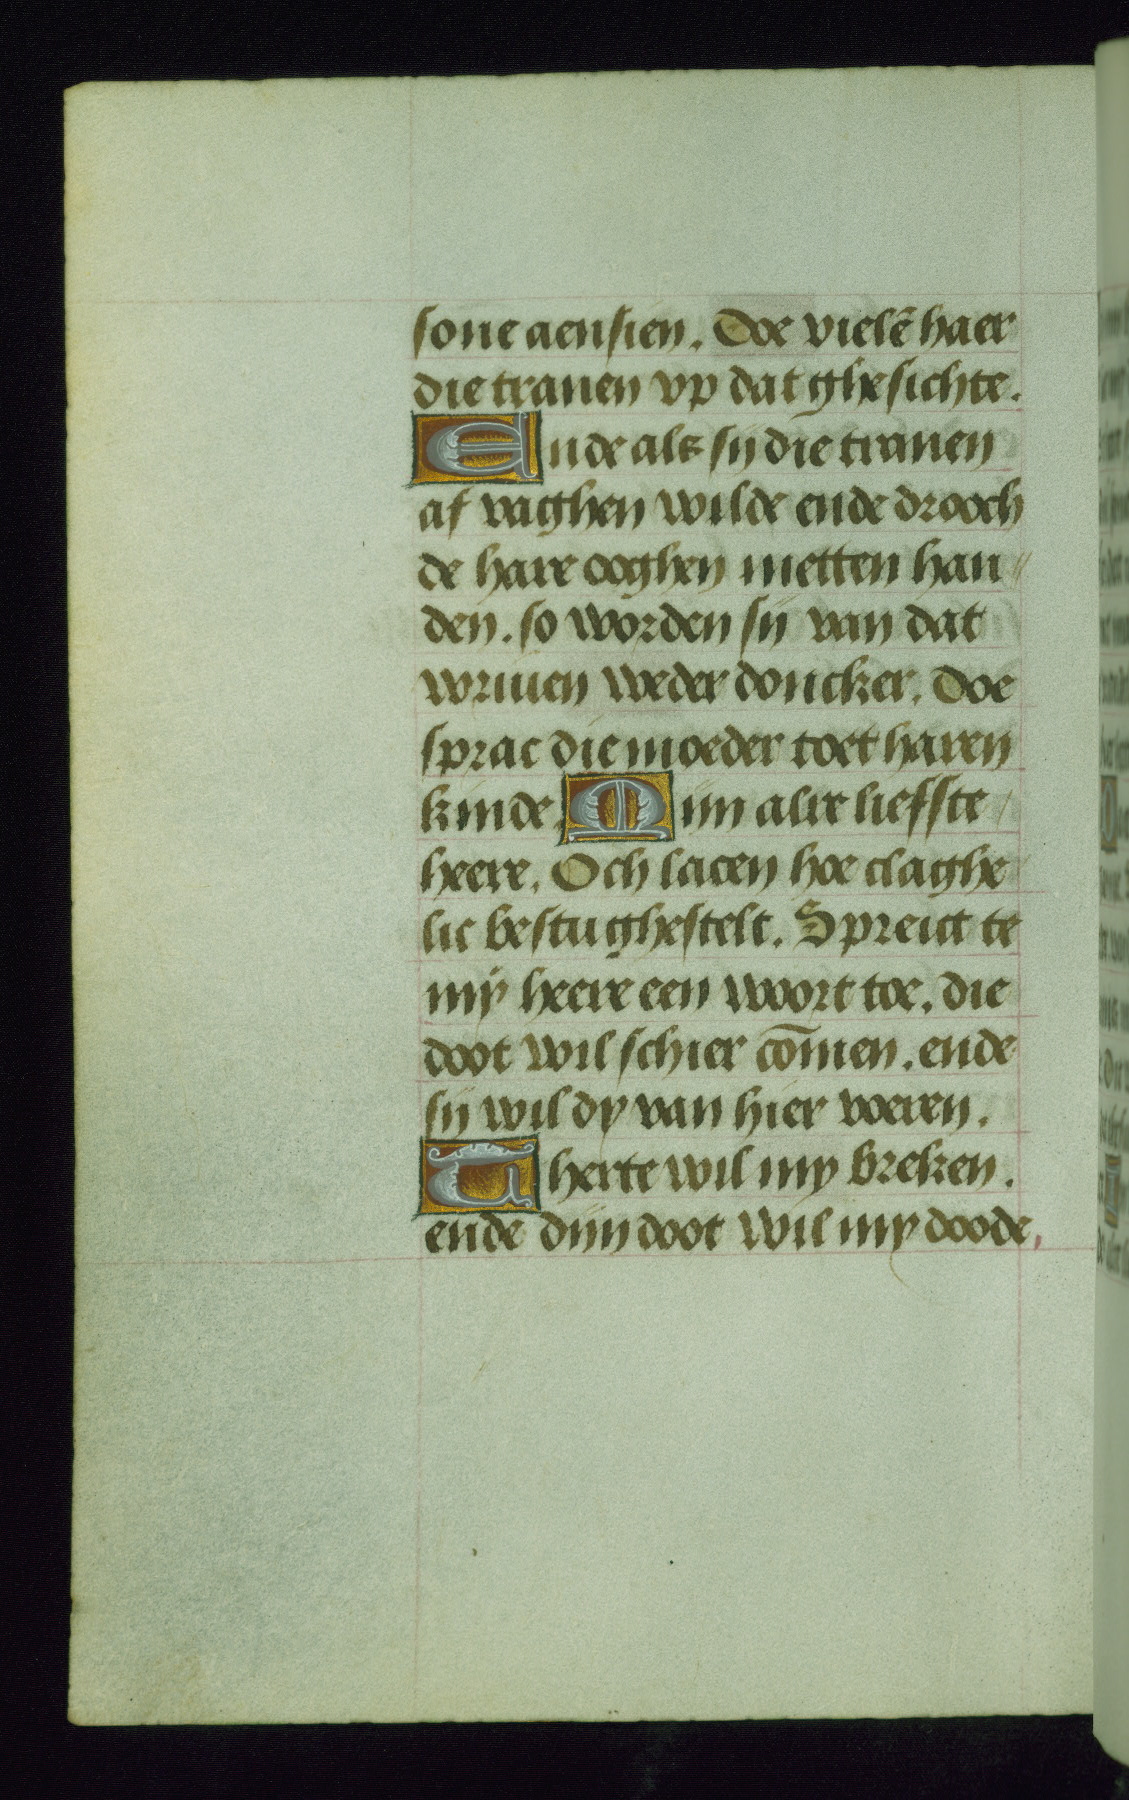 sone aensien. Doe vielē haer
die tranen vp dat ghesichte.
Ende als sij die tranen
af vaghen wilde ende drooch
de hare ooghen metten han〃
den. so worden sij van dat
wriuen weder doncker. Doe
sprac die moeder toet haren
kinde. Mijn alre liefste
heere. Och lacen hoe claghe
lic bestu ghestelt. Spreict te
mÿ heere een woort toe. die
doot wil schier cōmen. ende
sij wil dy van hier voeren.
Therte wil my breken.
ende dijn doot wil my doode.